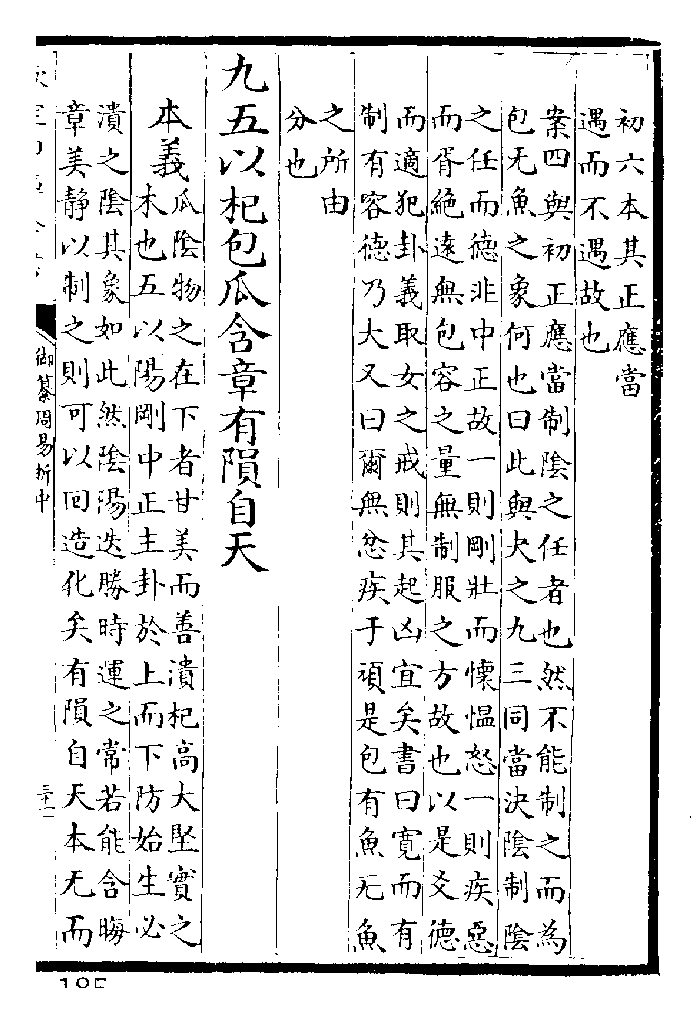 初六本其正應當
遇而不遇故也
案四與初正應當制陰之任者也然不能制之而為
包无魚之象何也曰此與夬之九三同當決陰制陰
之任而德非中正故一則剛壯而懷愠怒一則疾惡
而胥絶遠無包容之量無制服之方故也以是爻德
而適犯卦義取女之戒則其起凶宜矣書曰寛而有
制有容德乃大又曰爾無忿疾于頑是包有魚无魚
之所由
分也
九五以杞包瓜含章有隕自天
本義瓜陰物之在下者甘美而善潰杞高大堅實之
木也五以陽剛中正主卦於上而下防始生必
潰之陰其象如此然陰陽迭勝時運之常若能含晦
章美靜以制之則可以回造化矣有隕自天本无而
御纂周易折中